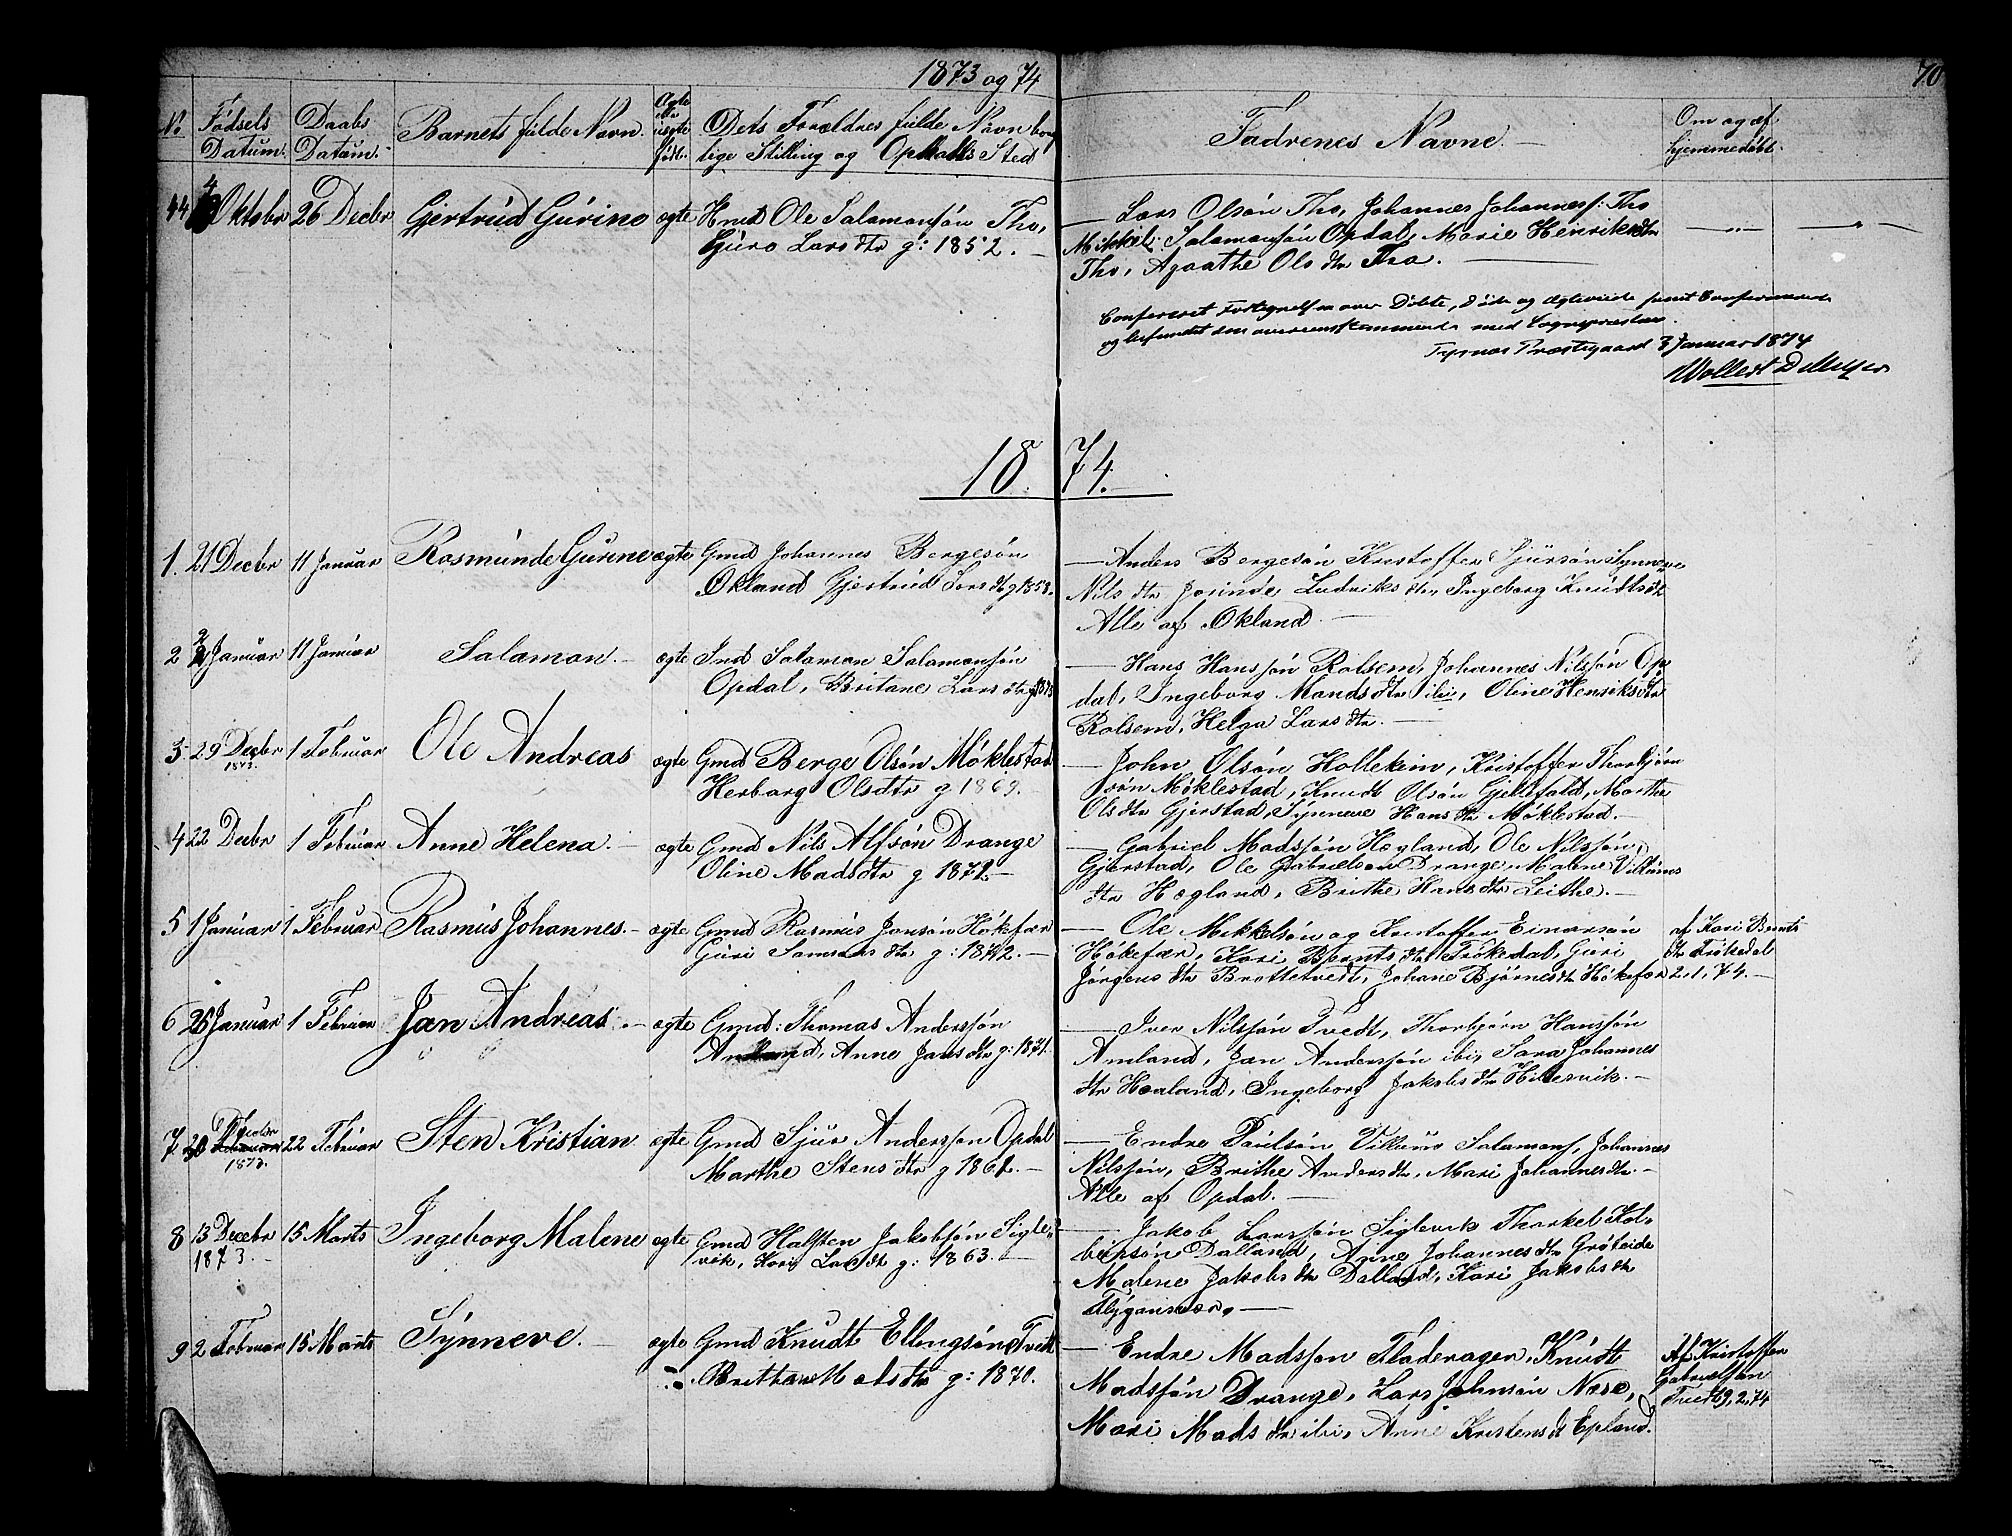 1873 og 74
70
No Fødsels Datum. Daabs Datum. Barnets fulde Navn. Ægte eller uægte født. Dets Forældres fulde Navn borg
lige Stilling og Opholds Sted
Fadrenes Navne. Om og af
hjemmedøbt.
44 4 Oktobr 26 Decbr Gjertrud Gurine ægte Hmd Ole Salamonsøn Tho,
Guro Lars dtr g: 1852.
Lars Olsøn Tho, Johannes Johannes: Tho
Mikkel Salamonsøn Opdal, Marie Henriksdtr
Tho, Agaathe Ols dtr Tho.
Confereret Fortegnelsen over Døbte, Døde og Ægteviede samt Confirmerede
og befundet den overeensstemmende med Sognepræstens
Tysnæs Præstegaard 3 Januar 1874
Wollert D Meyer
1874.
1. 21 Decbr 11 Januar Rasmunde Gurine ægte Gmd Johannes Bergesøn
Økland Gjertrud Lars dtr g 1858.
Anders Bergesøn Kristoffer Sjursøn Synneve
Nils dtr Ludviks dtr Ingeborg Knudtsdt
Alle af Økland
2 2 Januar 11 Januar Salamon. ægte Ind Salamon Salamonsøn
Opdal, Britane Lars dtr
Hans Hanssøn Rolsem, Johannes Nilsøn Op
dal, Ingeborg Mands dtr ibi, Oline Henriksdtr
Rolsem, Helga Lars dtr.
3 29 Decbr 1873. 1 Februar Ole Andreas ægte Gmd Berge Olsøn Møklestad
Herborg Olsdtr g 1869.
John Olsøn Hollekim, Kristoffer Thorbjørn
søn Møklestad, Knudt Olsøn Marthe
Ols dtr Gjerstad, Synneve Hans dtr Møklestad.
4 22 Decbr 1 Februar Anne Helena. ægte Gmd Nils Alfsøn Drange
Oline Madsdtr g 1872.
Gabriel Madsøn Hegland, Ole Nilsøn
Gjerstad, Ole Gabrielsøn Drange Malene Villums
dtr Hegland, Brithe Hans dtr Leithe.
5 1 Januar 1 Februar Rasmus Johannes. ægte Gmd Rasmus Jansøn Høkefær
Guri Samsons dtr g: 1872.
Ole Mikkelsøn og Kristoffer Einarsøn
Høkefær, Kari Bernts dtr Frøkedal, Guri
Jørgens dtr Brattetvedt, Johane Bjørnes dtr Høkefær
af Kari Bernts
dtr Frøkedal
2.1.74.
6 25 Januar 1 Februar Jan Andreas. ægte Gmd: Thomas Anderssøn
Amland, Anne Jans dtr g: 1871.
Iver Nilssøn Tvedt, Thorbjørn Hanssøn
Amland, Jan Anderssøn ibi, Sara Johannes
dtr Hoaland, Ingeborg Jakobs dtr Hillesvik.
7 1873. 22 Februar Sten Kristian ægte Gmd Sjur Anderssøn Opdal
Marthe Stens dtr g 1862.
Endre Paulsøn Villum Salamons, Johannes
Nilssøn, Brithe Anders dtr, Mari Johannesdtr.
Alle af Opdal.
8 13 Decebr 1873. 15 Marts Ingeborg Malene ægte Gmd Halsten Jakobsøn Sigle
vik, Kari Larsdt g: 1863.
Jakob Larssøn Siglevik Thorkel Kol
beinsøn Dalland, Anne Johannes dtr Grøteide
Malene Jakobs dtr Dalland, Kari Jakobs dtr
Flygansvær.
9 2 Februar 15 Marts Synneve. ægte Gmd Knudt Ellingsøn Tvedt
Brithe Mads dtr g: 1870.
Endre Madssøn Fladerager, Knudt
Madssøn Drange, Lars Johnsøn Nese,
Mari Mads dtr ibi, Anne Kristens dt Epland.
Af Kristoffer
Gabrielsøn
Tvedt 9,2,74